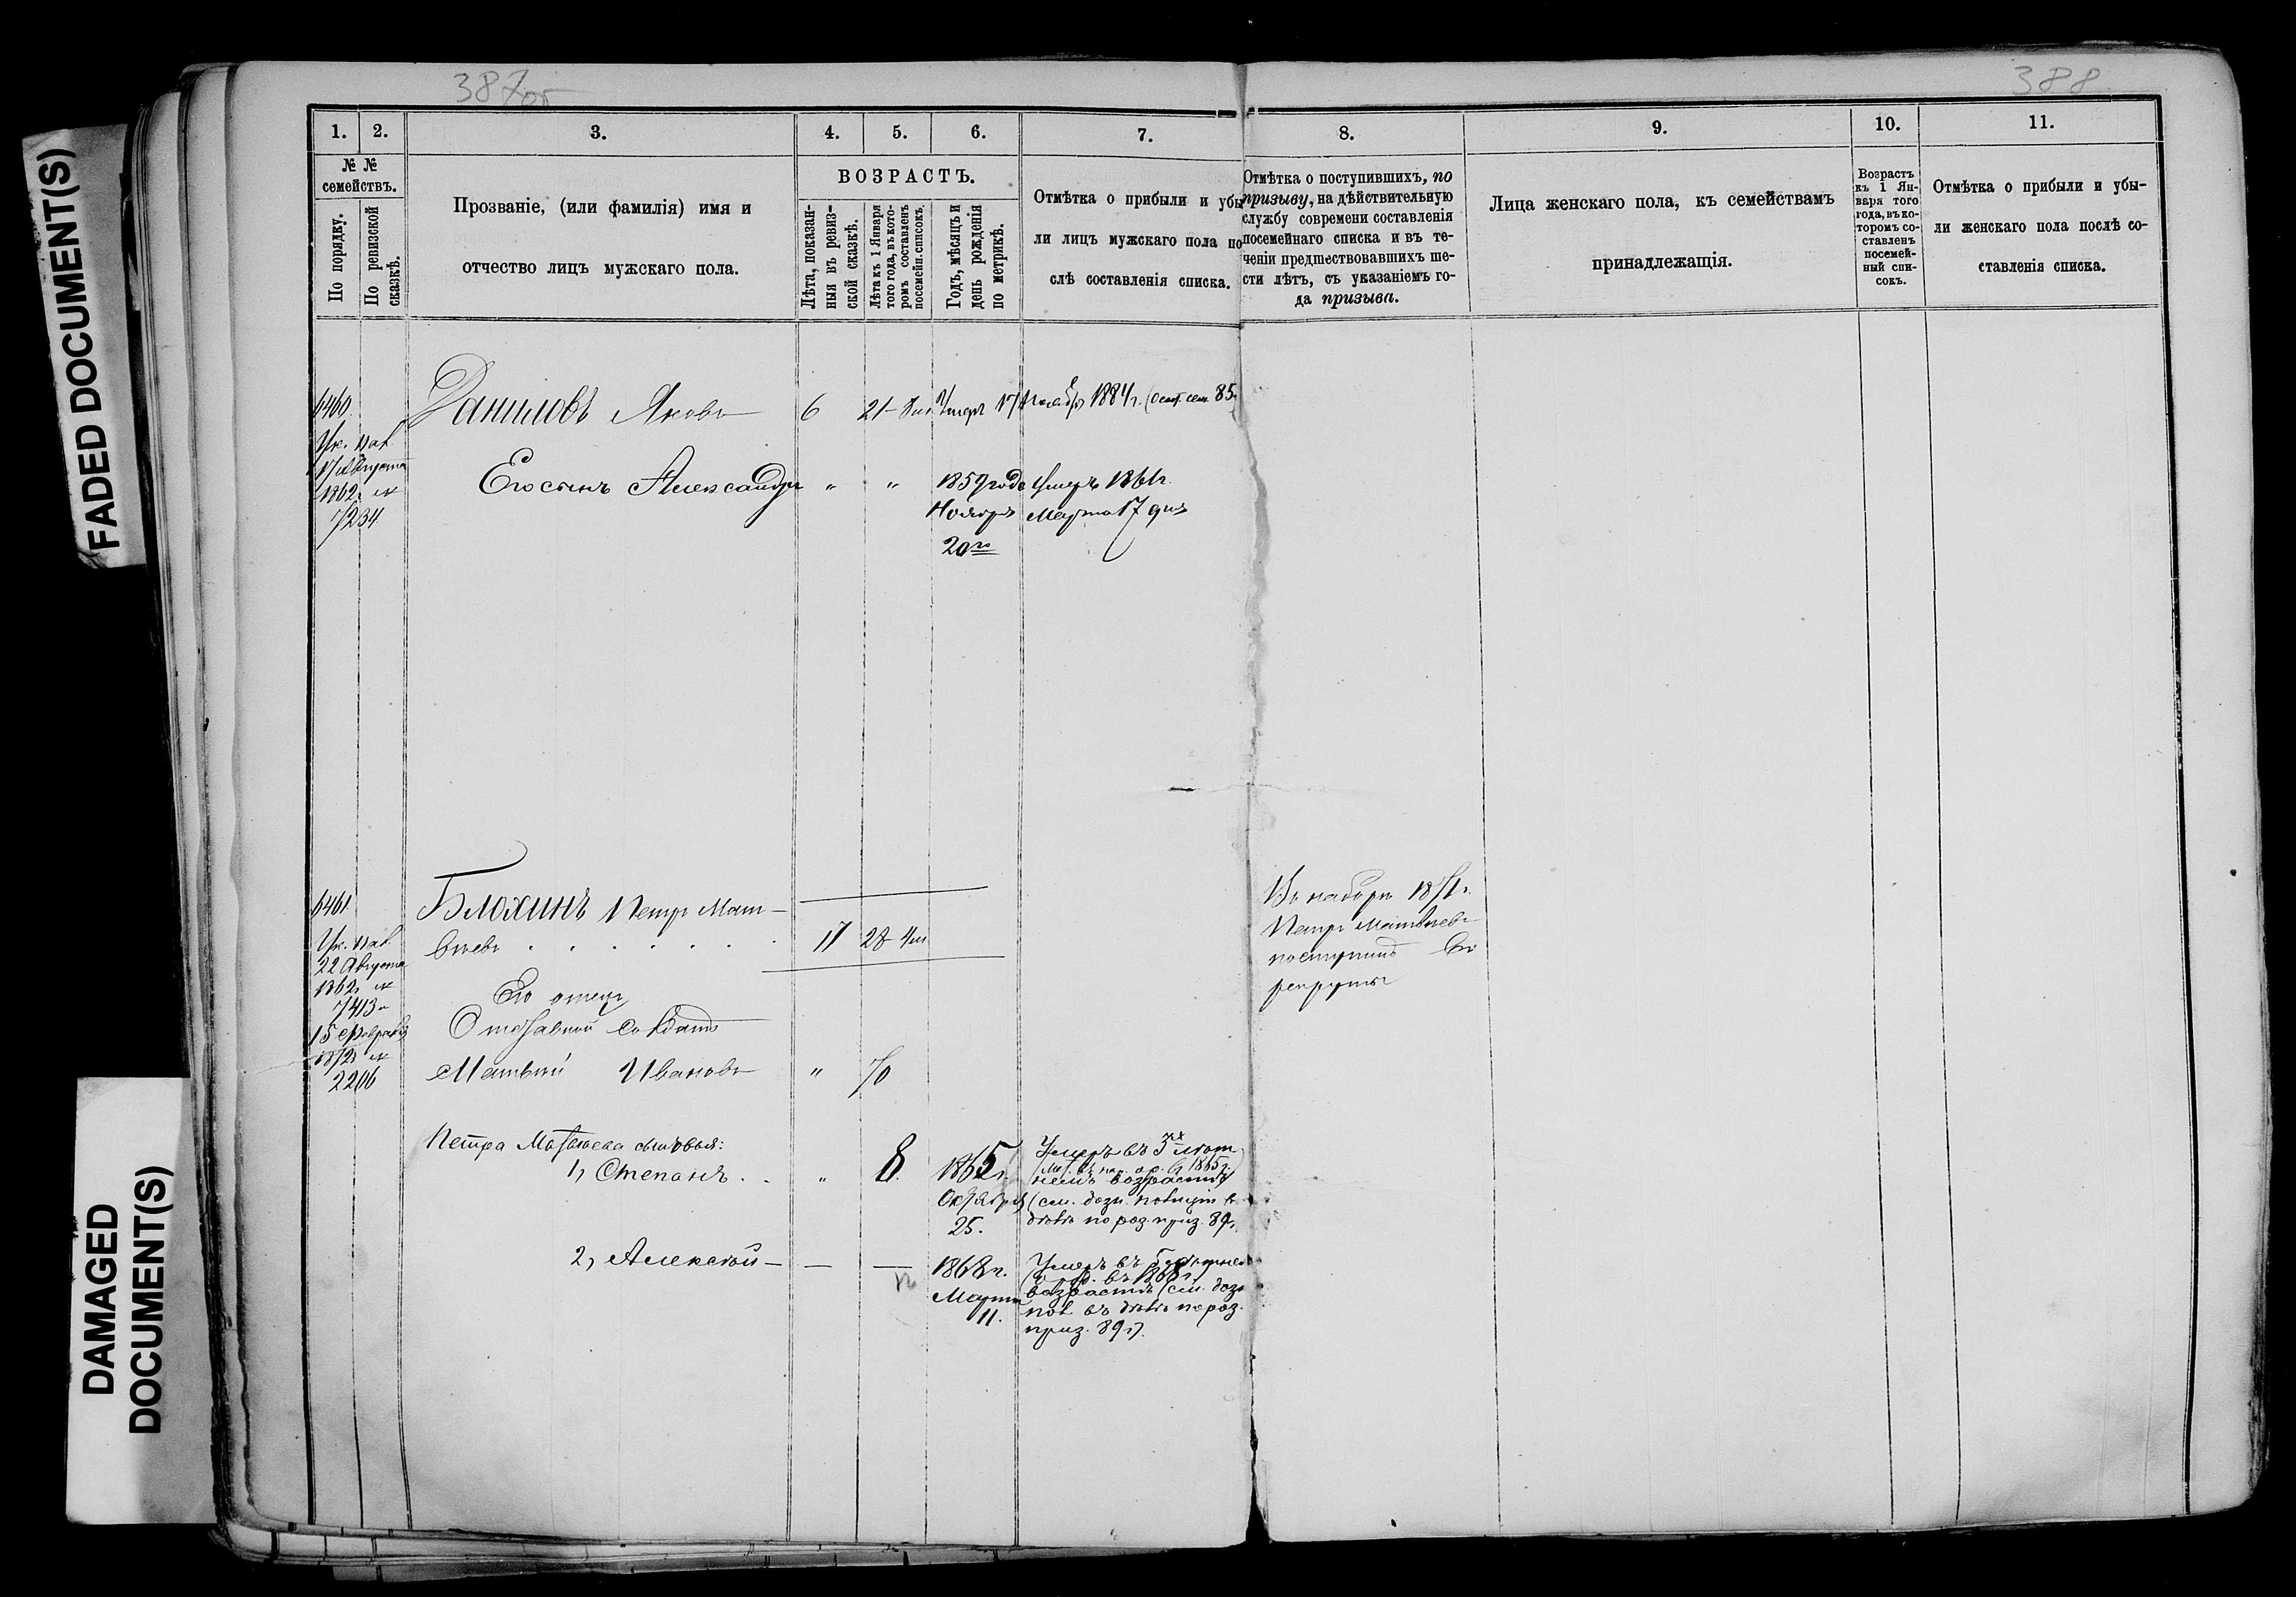 FADED DOCUMENT(S)
DAMAGED
DOCUMENT(S)
387об
388
1.
2.
3.
4.
5.
6.
7.
8.
9.
10.
11.
№ №
семействъ.
По порядку.
По ревизской
сказкѣ.
Прозваніе, (или фамилія) имя и
отчество лицъ мужскаго пола.
ВОЗРАСТЪ.
Лѣта, показан-
ныя въ ревиз-
ской сказкѣ.
Лѣта къ 1 Января
того года, въ кото-
ромъ составленъ
посемейн. списокъ.
Годъ, мѣсяцъ и
день рожденія
по метрикѣ.
Отмѣтка о прибыли и убы
ли лицъ мужскаго пола по
слѣ составленія списка.
Отмѣтка о поступившихъ, по
призыву, на дѣйствительную
службу современи составленія
посемейнаго списка и въ те-
ченіи предшествовавшихъ ше-
сти лѣтъ, съ указаніемъ го-
да призыва.
Лица женскаго пола, къ семействамъ
принадлежащія.
Возрастъ
къ 1 Ян-
варя того
года, въ ко-
торомъ со-
ставленъ
посемей-
ный спи-
сокъ.
Отмѣтка о прибыли и убы-
ли женскаго пола послѣ со-
ставленія списка.
6460
Даниловъ Яковъ
6
21
Умеръ 17 Ноября 1884 г.
17 Августа
1862 г. №
7234
Его сынъ Александръ
"
"
1859 года
Ноября
20го
Умеръ 1861 г.
Марта 17 дня
6461
22 Августа
1862 г. №
7413
15 Февраля
1872 г. №
2206
Блохинъ Петръ Мат-
вѣевъ
17
28
Въ наборъ 1871 г.
Петръ Матвѣевъ
поступилъ въ
рекруты
Его отецъ
Отставной солдатъ
Матвѣй Ивановъ
"
70
Петра Матвѣева сыновья:
1, Степанъ . .
"
8.
1865 г.
Октября
25.
Умеръ въ 3хъ лѣт
немъ возрастѣ
(см. дозн. полиціи въ
дѣлѣ по роз. приз. 89 г.
2, Алексѣй —
—
—
1868 г.
Марта
11.
Умеръ въ
возрастѣ (см. дозн
пол. въ дѣлѣ по роз.
приз. 89 г).